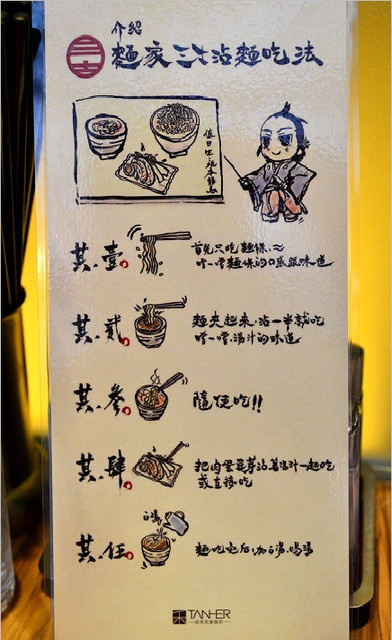 介紹
麵家三士沾麵吃法
值日生:坂本龍馬
其、壹。
首先只吃麵條、~
嚐一嚐麵條的口感跟味道
其、貳。
麵夾起來、沾一半就吃
嚐一嚐、湯汁的味道
其、參。
隨便吃!!
其、肆。
把肉蛋豆芽沾著湯汁一起吃
或直接吃
其、伍。
白湯
麵吃完后、加白湯、喝湯
TANHER